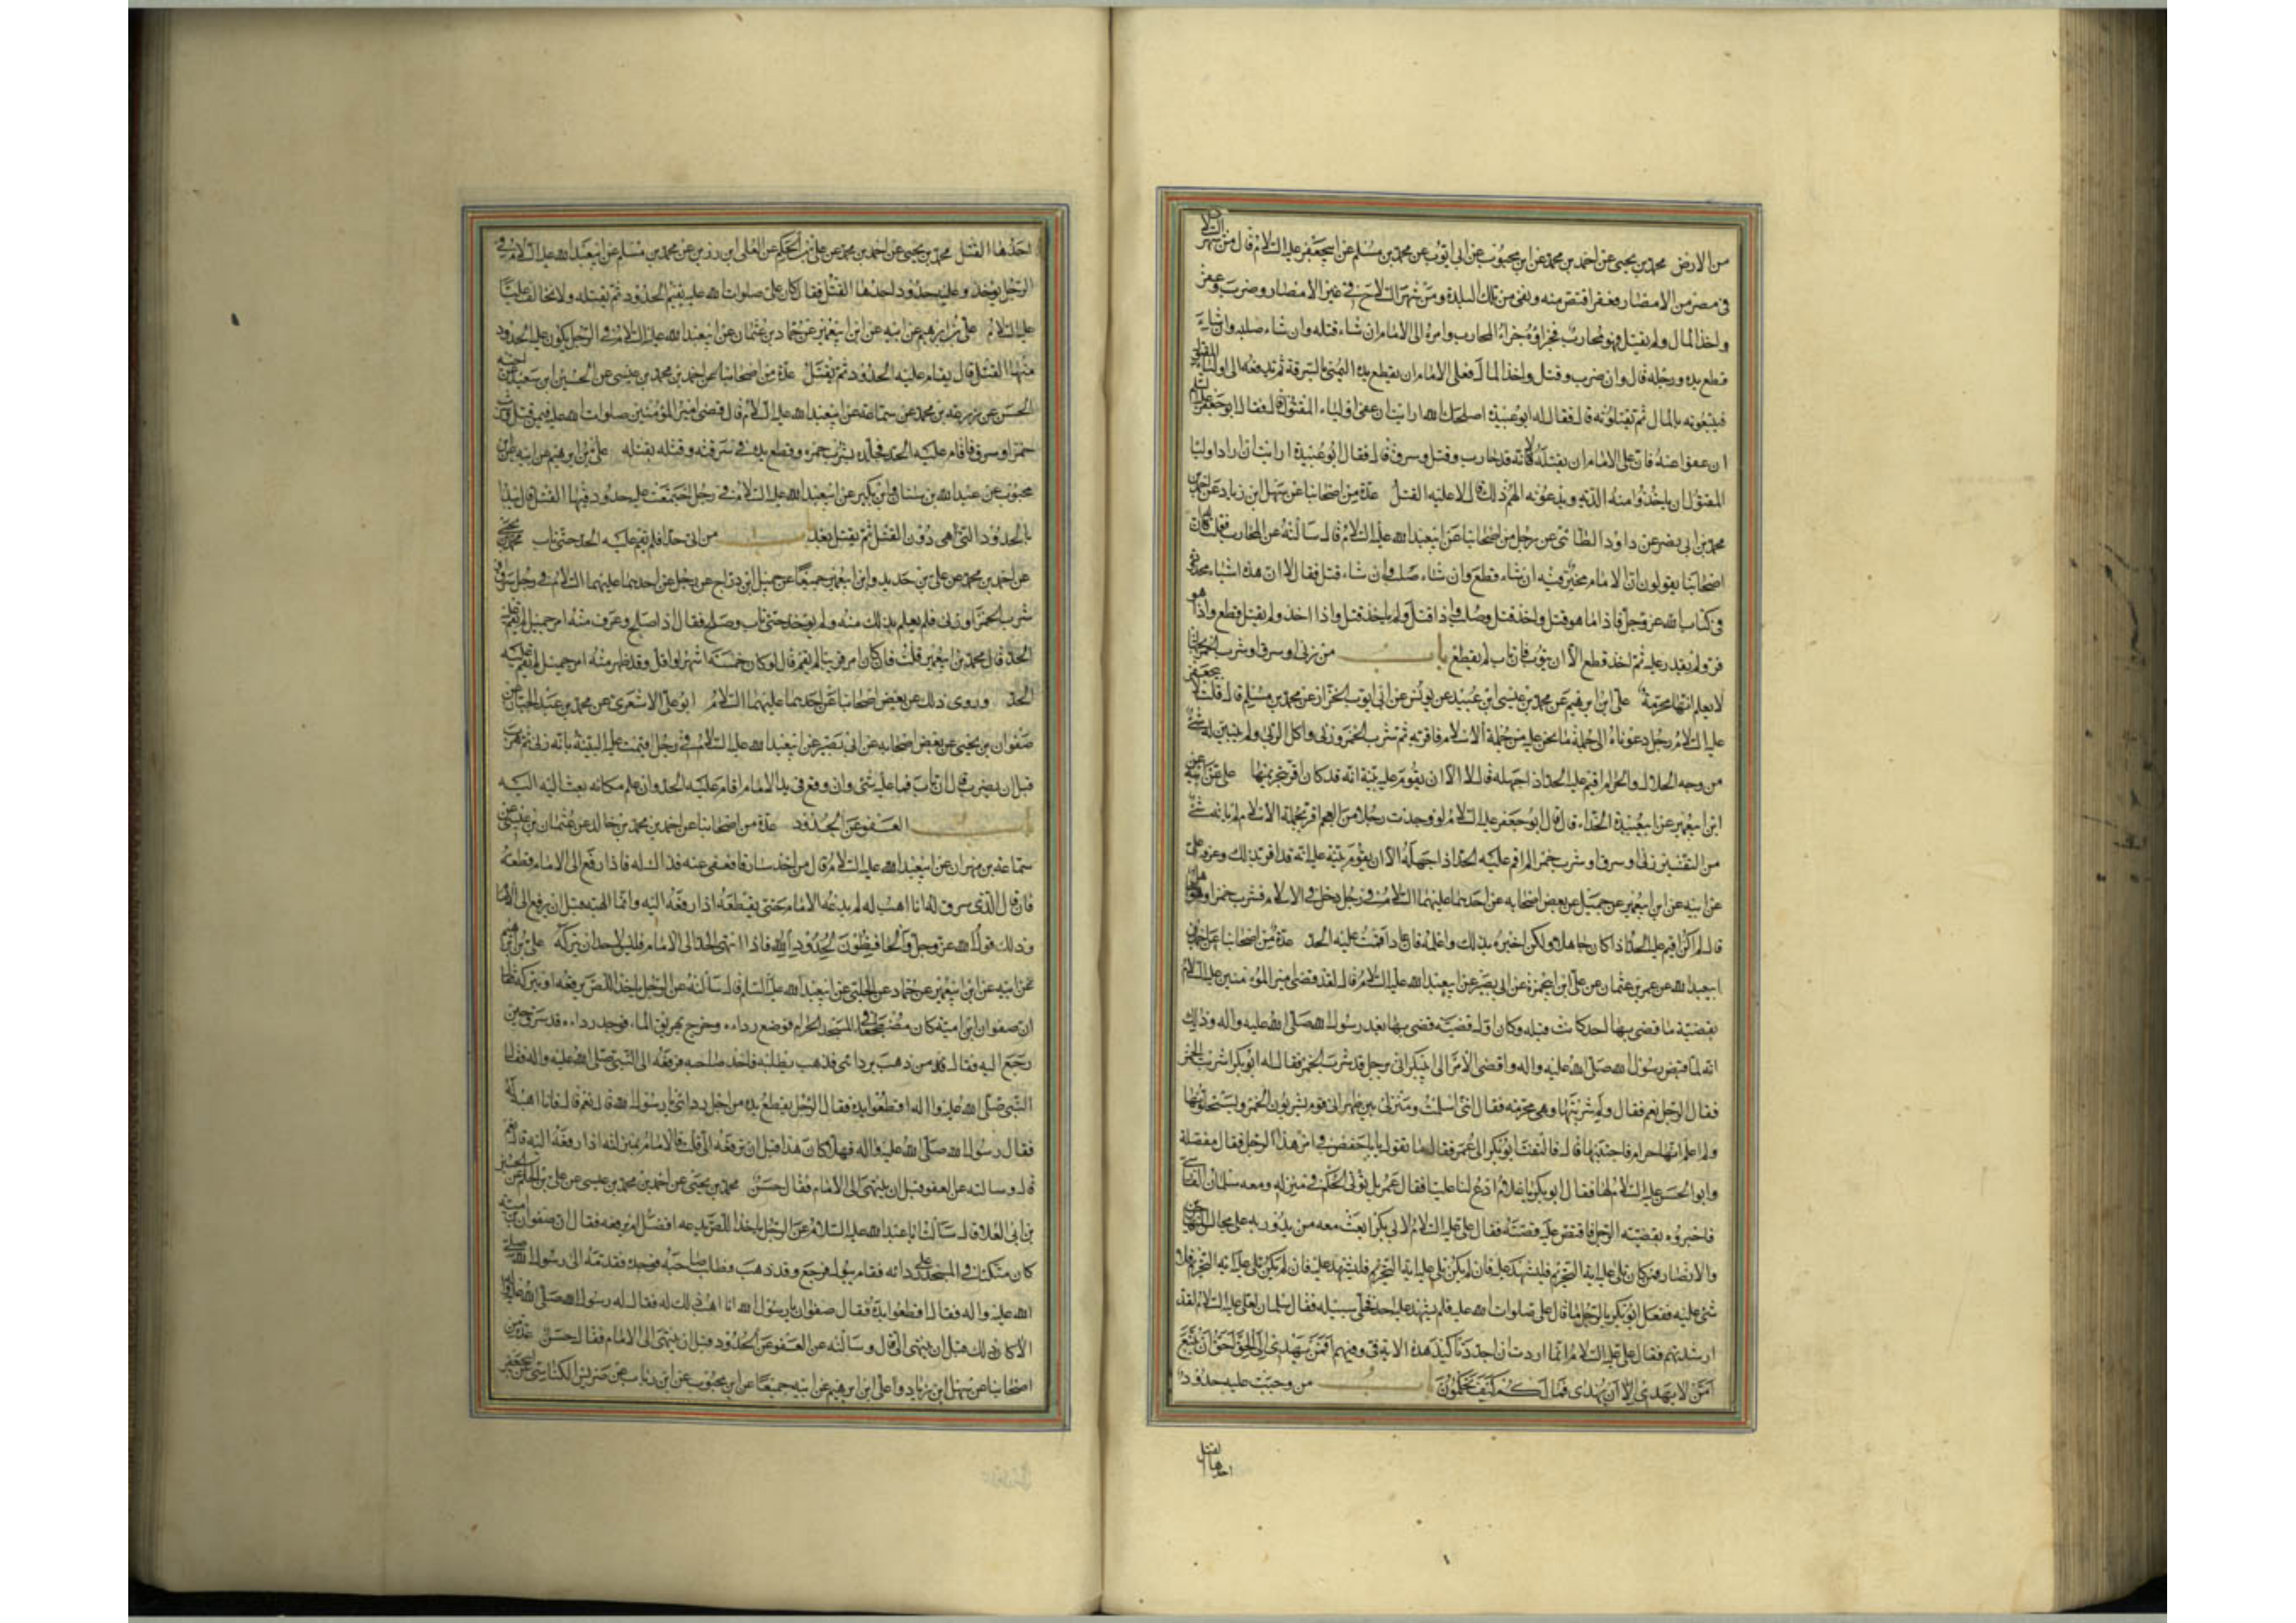 من الارض محمد بن يحيى عن احمد بن محمد عن ابن محبوب عن ابى ايوب عن محمد بن مسلم عن ابيجعفر عليه السلام قال من شهر السلاح
فى مصر من الامصار فعقر اقتص منه ونفى من تلك البلدة ومن شهر السلاح فى غير الامصار وضرب وعقر
واخذ المال ولم يقتل فهو محارب فجزاؤه جزاء المحارب وامره الى الامام ان شاء قتله وان شاء صلبه وان شاء
قطع يده ورجله قال وان ضرب وقتل واخذ المال فعلى الامام ان يقطع يده اليمنى بالسرقة ثم يدفعه الى اولياء المقتول
فيتبعونه بالمال ثم يقتلونه قال فقال له ابو عبيدة اصلحك الله ارايت ان عفى اولياء المقتول قال فقال ابو جعفر عليه السلام
ان عفوا عنه فان على الامام ان يقتله لانه قد حارب وقتل وسرق قال فقال ابو عبيدة ارايت ان اراد اوليا
المقتول ان ياخذوا منه الدية ويدعونه الهم ذلك قال لا عليه القتل عدة من اصحابنا عن سهل ابن زياد عن احمد بن
محمد بن ابى نصر عن داود الطائى عن رجل من اصحابنا عن ابيعبد الله عليه السلام قال سالته عن المحارب فقلت له ان
اصحابنا يقولون ان الامام مخير فيه ان شاء قطع وان شاء صلب وان شاء قتل فقال لا ان هذه اشياء محدودة
فى كتاب الله عز وجل فاذا ما هو قتل واخذ قتل وصلب واذا قتل ولم ياخذ قتل واذا اخذ ولم يقتل قطع واذا هو
فر ولم يقدر عليه ثم اخذ قطع الا ان يتوب فان تاب لم يقطع باب من زنى او سرق او شرب الخمر بجهالة
لا يعلم انها محرمة على ابن ابرهيم عن محمد بن عيسى ابن عبيد عن يونس عن ابى ايوب الخزاز عن محمد بن مسلم قال قلت لابيجعفر
عليه السلام رجل دعوناه الى جملة ما نحن عليه من جملة الاسلام فاقر به ثم شرب الخمر وزنى واكل الربى ولم يتبين له شئ
من وجه الحلال والحرام اقيم عليه الحد اذا جهله قال لا الا ان يقوم عليه بينة انه قد كان اقر بتحريمها على عن ابيه عن
ابن ابيعمير عن ابيعبيدة الحذاء قال قال ابو جعفر عليه السلام لو وجدت رجلا من العجم اقر بجملة الاسلام لم ياته شئ
من التفسير زنى او سرق او شرب خمرا لم اقم عليه الحد اذا جهله الا ان يقوم بينة عليه انه قد اقر بذلك وعرفه على
عن ابيه عن ابن ابيعمير عن جميل عن بعض اصحابه عن احدهما عليهما السلام فى رجل دخل فى الاسلام فشرب خمرا وهو جاهل
قال لم اكن اقيم عليه الحد اذا كان جاهلا ولكن اخبره بذلك واعلمه فان عاد اقمت عليه الحد عدة من اصحابنا عن احمد بن
ابيعبد الله عن عمر بن عثمان عن على ابن ابيحمزة عن ابى بصير عن ابيعبد الله عليه السلام قال لقد قضى امير المؤمنين عليه السلام
بقضية ما قضى بها احد كانت قبله وكان اول قضية قضى بها بعد رسول الله صلى الله عليه واله وذلك
انه لما قبض رسول الله صلى الله عليه واله وافضى الامر الى ابيبكر اتى برجل قد شرب الخمر فقال له ابو بكر اشربت الخمر
فقال الرجل نعم فقال ولم شربتها وهى محرمة فقال اننى اسلمت ومنزلى بين ظهرانى قوم يشربون الخمر ويستحلونها
ولم اعلم انها حرام فاجتنبها قال فالتفت ابو بكر الى عمر فقال ما تقول يا ابا حفص فى امر هذا الرجل فقال معضلة
وابو الحسن عليه السلام لها فقال ابو بكر يا غلام ادع لنا عليا فقال عمر بل يؤتى الحكم فى منزله ومعه سلمان الفارسى
فاخبروه بقضية الرجل فاقتص عليه قصته فقال على عليه السلام لابى بكر ابعث معه من يدور به على مجالس المهاجرين
والانصار فمن كان تلى عليه اية التحريم فليشهد عليه فان لم يكن تلى عليه اية التحريم فليشهد عليه فان لم يكن تلى عليه اية التحريم فلا
شئ عليه ففعل ابو بكر بالرجل ما قال على صلوات الله عليه فلم يشهد عليه احد فخلى سبيله فقال سلمان لعلى عليه السلام لقد
ارشدتهم فقال على عليه السلام انما اردت ان اجدد تاكيد هذه الاية فى وفيهم افمن يهدى الى الحق احق ان يتبع
امن لا يهدى الا ان يهدى فما لكم كيف تحكمون باب من وجبت عليه حدود
احدها القتل
احدها القتل محمد بن يحيى عن احمد بن محمد عن على بن الحكم عن العلى ابن رزين عن محمد بن مسلم عن ابيعبد الله عليه السلام فى
الرجل يوخذ وعليه حدود احدها القتل فقال كان على صلوات الله عليه يقيم الحدود ثم يقتله ولا نخالف عليا
عليه السلام على بن ابرهيم عن ابيه عن ابن ابيعمير عن حماد بن عثمان عن ابيعبد الله عليه السلام فى الرجل يكون عليه الحدود
منها القتل قال يقام عليه الحدود ثم يقتل عدة من اصحابنا عن احمد بن محمد بن عيسى عن الحسين ابن سعيد عن اخيه
الحسن عن زرعه بن محمد عن سماعة عن ابيعبد الله عليه السلام قال قضى امير المؤمنين صلوات الله عليه فيمن قتل وشرب
خمرا وسرق فاقام عليه الحد فجلده بشرب خمره وقطع يده فى سرقته وقتله بقتله على بن ابرهيم عن ابيه عن ابن
محبوب عن عبد الله بن سنان وابن بكير عن ابيعبد الله عليه السلام فى رجل اجتمعت عليه حدود فيها القتل قال يبدا
بالحدود التى هى دون القتل ثم يقتل بعد باب من اتى حدا فلم يقم عليه الحد حتى تاب محمد بن يحيى
عن احمد بن محمد عن على بن حديد وابن ابيعمير جميعا عن جميل ابن دراج عن رجل عن احدهما عليهما السلام فى رجل سرق او
شرب الخمر او زنى فلم يعلم بذلك منه ولم يوخذ حتى تاب وصلح فقال اذا صلح وعرف منه امر جميل لم يقم عليه
الحد قال محمد بن ابيعمير قلت فان كان امر قريبا لم يقم قال لو كان خمسة اشهر او اقل وقد ظهر منه امر جميل لم يقم عليه
الحد وروى ذلك عن بعض اصحابنا عن احدهما عليهما السلام ابو على الاشعرى عن محمد بن عبد الجبار عن
صفوان بن يحيى عن بعض اصحابه عن ابى بصير عن ابيعبد الله عليه السلام فى رجل اقيمت عليه البينة بانه زنى ثم هرب
قبل ان يضرب قال ان تاب فما عليه شئ وان وقع فى يد الامام اقام عليه الحد وان علم مكانه بعث اليه
باب العفو عن الحدود عدة من اصحابنا عن احمد بن محمد بن خالد عن عثمان بن عيسى عن
سماعة بن مهران عن ابيعبد الله عليه السلام قال من اخذ سارقا فعفى عنه فذلك له فاذا رفع الى الامام قطعه
فان قال الذى سرق له انا اهب له لم يدعه الامام حتى يقطعه اذا رفعه اليه وانما الهبة قبل ان يرفع الى الامام
وذلك قول الله عز وجل والحافظون لحدود الله فاذا انتهى الحد الى الامام فليس لاحد ان يتركه على بن ابرهيم
عن ابيه عن ابن ابيعمير عن حماد عن الحلبى عن ابيعبد الله عليه السلام قال سالته عن الرجل ياخذ اللص يرفعه او يتركه فقال
ان صفوان ابن امية كان مضطجعا فى المسجد الحرام فوضع رداءه وخرج يهريق الماء فوجد رداءه قد سرق حين
رجع اليه فقال من ذهب بردائى فذهب يطلبه فاخذ صاحبه فرفعه الى النبى صلى الله عليه واله فقال
النبى صلى الله عليه واله اقطعوا يده فقال الرجل يقطع يده من اجل ردائى يا رسول الله قال نعم قال فانا اهبه له
فقال رسول الله صلى الله عليه واله فهلا كان هذا قبل ان ترفعه الى قلت فالامام بمنزلته اذا رفعه اليه قال نعم
قال وسالته عن العفو قبل ان ينتهى الى الامام فقال حسن محمد بن يحيى عن احمد بن محمد بن عيسى عن على بن الحكم عن الحسين
بن ابى العلا قال سالت ابا عبد الله عليه السلام عن الرجل ياخذ اللص يدعه افضل ام يرفعه فقال ان صفوان بن امية
كان متكئا فى المسجد على ردائه فقام يبول فرجع وقد ذهب فطلب صاحبه فوجده فقدمه الى رسول الله صلى
الله عليه واله فقال اقطعوا يده فقال صفوان يا رسول الله انا اهب ذلك له فقال له رسول الله صلى الله عليه واله
الا كان ذلك قبل ان ينتهى الى قال وسالته عن العفو عن الحدود قبل ان ينتهى الى الامام فقال حسن عدة من
اصحابنا عن سهل ابن زياد وعلى ابن ابرهيم عن ابيه جميعا عن ابن محبوب عن ابن رئاب عن ضريس الكناسى عن ابيجعفر